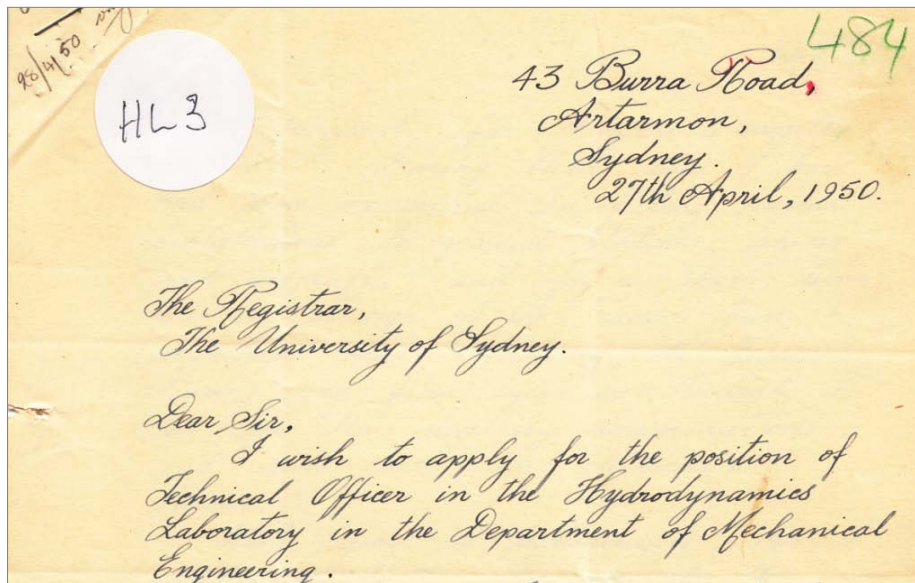 28/4/50
484
HL3
43 Burra Road,
Artarmon,
Sydney.
27th April, 1950.
The Registrar,
The University of Sydney.
Dear Sir,
I wish to apply for the position of
Technical Officer in the Hydrodynamics
Laboratory in the Department of Mechanical
Engineering.